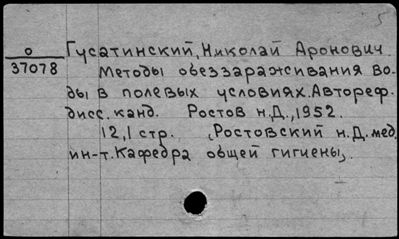 5
О Гусатинский, Николай Аронович.
37078
Методы обеззараживания во-
ды в полевых условиях. Автореф.
дисс. канд. Ростов н.Д., 1952.
12,1 стр. (Ростовский н.Д. мед.
ин-т. Кафедра общей гигиены).